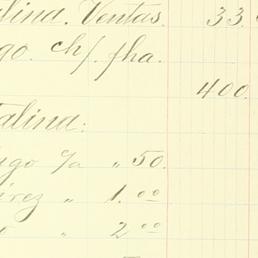 lind. Ventas. 33.
go. ch/. fha.
400.
alind:
ugo c/a " 50.
irez " 1.00
o " 2.00